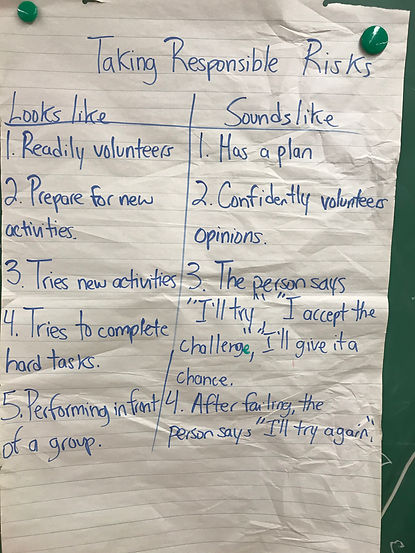 Taking Responsible Risks
Looks like
1. Readily volunteers
2. Prepare for new
activities.
3. Tries new activities
4. Tries to complete
hard tasks.
5. Performing in front
of a group.
Sounds like
1. Has a plan
2. Confidently volunteers
opinions.
3. The person says
"I'll try" "I accept the
challenge", "I'll give it a
chance.
4. After failing, the
person says "I'll try again".